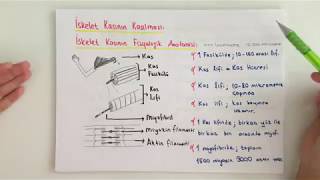 İskelet Kasının Kasılması
İskelet Kasının Fizyolojik Anatomisi
Kas
Kas
Fasikülü
Kas
lifi
Miyofibril
Miyozin filamenti
Aktin filamenti
1 Fasikülde; 10-100 arası lif.
Kas lifi = Kas Hücresi
Kas lifi; 10-80 mikrometre
çapında
Kas lifi; kas boyunca
uzanır.
1 Kas lifinde; birkaç yüz ile
birkaç bin arasında miyof.
1 miyofibrilde; toplam
1500 miyozin 3000 aktin